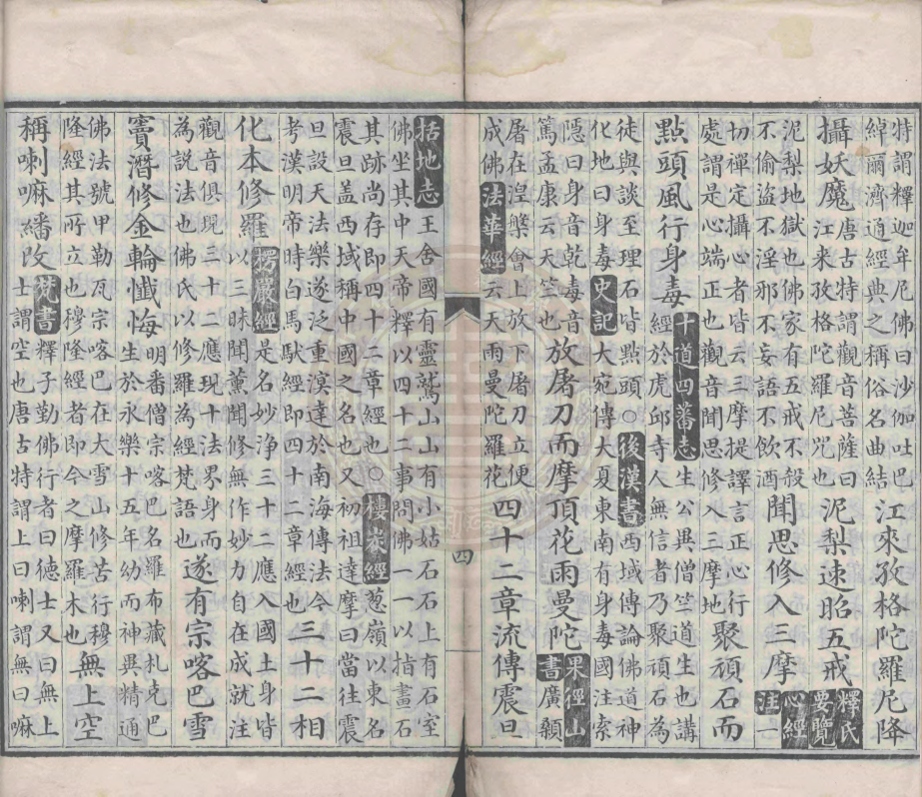 特謂釋迦牟尼佛曰沙伽吐巴
綽爾濟道經典之稱俗名曲結
江來孜格陀羅尼降
攝妖魔
唐古特謂觀音菩薩曰
江來孜格陀羅尼咒也
泥犁速昭五戒
釋氏
要覽
泥犁地獄也佛家有五戒不殺
不偷盜不淫邪不妄語不飲酒
聞思修入三摩
心經
注一
切禪定攝心者皆云三摩提譯言正心行
處謂是心端正也觀音聞思修入三摩地
聚頑石而
點頭風行身毒
十道四蕃志生公異僧竺道生也講
經於虎邱寺人無信者乃聚頑石為
徒與談至理石皆點頭○後漢書西域傳論佛道神
化地曰身毒史記大宛傳大夏東南有身毒國注索
隱曰身音乾毒音
篤孟康云天竺也
放屠刀而摩頂花雨曼陀
果徑山
書廣額
屠在湼槃會上放下屠刀立便
成佛法華經云天雨曼陀羅花
四十二章流傳震旦
四
括地志王舍國有靈鷲山山有小姑石石上有石室
佛坐其中天帝釋以四十二事問佛一一以指畫石
其跡尚存即四十二章經也○樓炭經蔥嶺以東名
震旦盖西域稱中國之名也又初祖達摩曰當往震
旦設天法樂遂泛重溟達於南海傳法今
考漢明帝時白馬馱經即四十二章經也
三十二相
化本修羅
楞嚴經是名妙淨三十二應入國土身皆
以三昧聞薰聞修無作妙力自在成就注
觀音俱現三十二應現十法界身而
為説法也佛氏以修羅為經梵語也
遂有宗喀巴雪
竇潛修金輪懺悔
明番僧宗喀巴名羅布藏札克巴
生於永樂十五年幼而神異精通
佛法號甲勒瓦宗喀巴在大雪山修苦行穆
隆經其所立也穆隆經者即今之摩羅木也
無上空
稱喇嘛繙改
梵書釋子勤佛行者曰德士又曰無上
士謂空也唐古特謂上曰喇謂無曰嘛